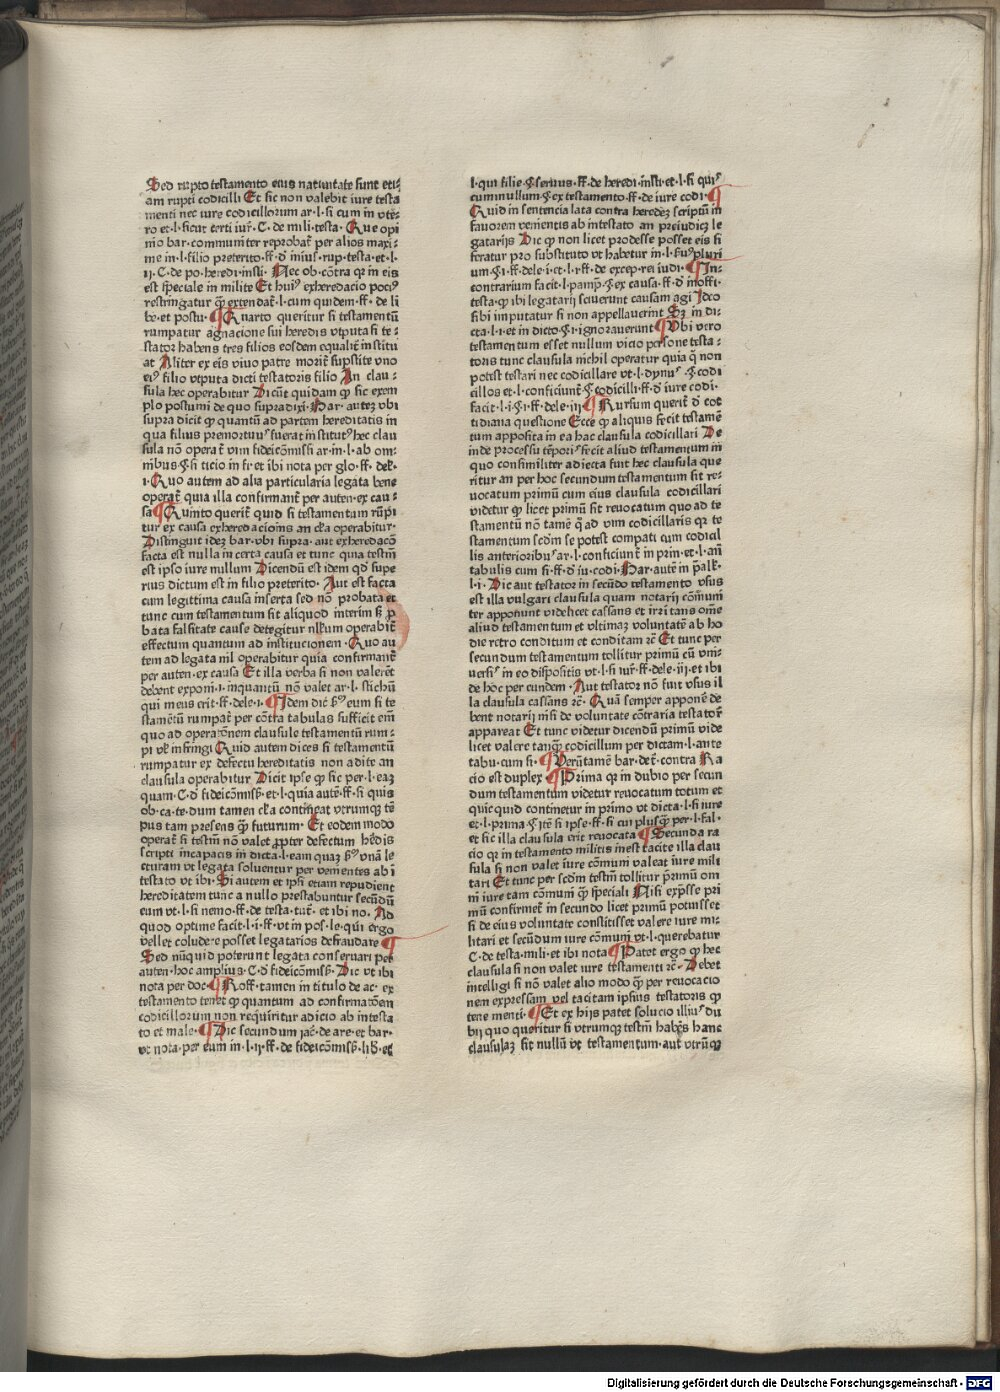 Sed rupto testamento eius natiuitate sunt eti⸗
am rupti codicilli Et sic non valebit iure testa
menti nec iure codicillorum ar·l·si cum in vte⸗
ro et·l·sicut certi iur̄·C·de mili·testa·Que opi
nio bar·communiter reprobat̄ per alios maxi⸗
me in·l·filio preterito·ff·d̄ iniusꝰ·rup·testa·et·l·
ij·C·de po·heredi·insti·Nec ob·cōtra qr in eis
est speciale in milite Et huiꝰ exheredacio pociꝰ
restringatur ꝙ extendat̄·l·cum quidem·ff·de li
be·et postu·¶Quarto queritur si testamentū
rumpatur agnacione sui heredis vtputa si te⸗
stator habens tres filios eosdem equalit̄ institu
at Aliter ex eis viuo patre morit̄ supstite vno
eiꝰ filio vtputa dicti testatoris filio An clau⸗
sula hec operabitur Dicūt quidam ꝙ sic exem
plo postumi de quo supra dixi·Bar·autez vbi
supra dicit ꝙ quantū ad partem hereditatis in
qua filius premortuꝰ fuerat institutꝰ hec clau
sula nō operat̄ vim fideicōmissi ar·in·l·ab om⸗
nibus·§·si ticio in fi·et ibi nota per glo·ff·dele·
i·Quo autem ad alia particularia legata bene
operat̄ quia illa confirmant̄ per auten·ex cau⸗
sa¶Quinto querit̄ quid si testamentum rūpi
tur ex causa exheredacioīns an cl̄a operabitur·
Distinguit idez bar·vbi supra·aut exheredacō
facta est nulla in certa causa et tunc quia testm̄
est ipso iure nullum Dicendū est idem qd̄ supe
rius dictum est in filio preterito·Aut est facta
cum legittima causa inserta sed nō probata et
tunc cum testamentum sit aliquod interim sꝫ p
bata falsitate cause detegitur nllum operabit̄
effectum quantum ad institucionem·Quo au
tem ad legata nil operabitur quia confirmant̄
per auten·ex causa Et illa verba si non valeret
debent exponi·i·inquantū nō valet ar·l·stichū
qui meus erit·ff·dele·i·¶Idem dic̄ bꝰ eum si te
stamētū rumpat̄ per cōtra tabulas sufficit em̄
quo ad operationem clausule testamentū rum⸗
pi vl̄ infringi Quid autem dices si testamentū
rumpatur ex defectu hereditatis non adite an
clausula operabitur Dicit ipse ꝙ sic per·l·eaꝫ
quam·C·d̄ fideicōmisß·et·l·quia aute·ff·si quis
ob·ca·te·dum tamen cl̄a contineat vtrumqꝫ tē
pus tam presens ꝙ futurum·Et eodem modo
operat̄ si testm̄ nō valet propter defectum h̄edis
scripti incapacis in dicta·l·eam quaꝫ bꝰ vnā le
cturam vt legata soluentur per venientes ab i
testato vt ibi·Si autem et ipsi etiam repudient
hereditatem tunc a nullo prestabuntur secūdū
eum vt·l·si nemo·ff·de testa·tut̄·et ibi no·Ad
quod optime facit·l·i·ff·vt in pos·le·qui ergo
vellet coludere posset legatarios defraudare¶
Sed nūquid poterunt legata conseruari per
auten·hoc amplius·C·d̄ fideicōmisß·Dic vt ibi
nota per doc·¶Roff·tamen in titulo de ac·ex
testamento tenet ꝙ quantum ad confirmatōem
codicillorum non requiritur adicio ab intesta
to et male·¶Dic secundum iac̄·de are·et bar·
vt nota·per eum in·l·ij·ff·de fideicōmisß·lib̄·et
l·qui filie·§·seruus·ff·de heredi·insti·et·l·si quiꝰ
cum nullum·§·ex testamento·ff·de iure codi·¶
Quid in sentencia lata contra heredez scriptū in
fauorem venientis ab intestato an preiudicꝫ le
gatarijs Dic ꝙ non licet prodesse posset eis si
feratur pro substituto vt habetur in·l·si pluri
um·§·i·ff·dele·i·et·l·i·ff·de excep·rei iudi·¶In·
contrarium facit·l·pamp·§·ex causa·ff·d̄ inoffi·
testa·ꝙ ibi legatarij sciuerunt causam agi Ideo
sibi imputatur si non appellauerint Sꝫ in di⸗
cta·l·i·et in dicto·§·i·ignorauerunt¶Vbi vero
testamentum esset nullum vicio persone testa⸗
toris tunc clausula nichil operatur quia q̄ non
potest testari nec codicillare vt·l·dynuꝰ·§·codi
cillos et·l·conficiunt̄·§·codicilli·ff·d̄ iure codi·
facit·l·i·§·i·ff·dele·iij·¶Rursum querit̄ d̄ cot
tidiana questione Ecce ꝙ aliquis fecit testamē
tum apposita in ea hac clausula codicillari De
inde processu tēporiꝰ fecit aliud testamentum in
quo consimiliter adiecta sunt hec clausula que
ritur an per hoc secundum testamentum sit re⸗
uocatum primū cum eius clausula codicillari
videtur ꝙ licet primū sit reuocatum quo ad te
stamentū nō tamē q̄ ad vim codicillaris qr te
stamentum scd̄m se potest compati cum codicil
lis anterioribuꝰ ar·l·conficiunt̄ in prin·et·l·an̄
tabulis cum si·ff·d̄ iu·codi·Bar·autē in p̄alꝉ·
l·i·Dic aut testator in secūdo testamento vsus
est illa vulgari clausula quam notarij cōmuni
ter apponunt videlicet cassans et irritans om̄e
aliud testamentum et vltimaꝫ voluntatē ab ho
die retro conditum et conditam rē Et tunc per
secundum testamentum tollitur primū cū vni⸗
uersiꝰ in eo dispositis vt·l·si iur̄·ff·dele·iij·et ibi
de hoc per eundem·Aut testator nō fuit vsus il
la clausula cassans rē·Quā semper apponē de
bent notarij nisi de voluntate cōtraria testatoꝝ
appareat Et tunc videtur dicendū primū vide
licet valere tanqꝫ codicillum per dictam·l·ante
tabu·cum si·¶Verūtamē bar·det̄·contra Ra
cio est duplex·¶Prima qr in dubio per secun
dum testamentum videtur reuocatum totum et
quicquid continetur in primo vt dicta·l·si iure
et·l·prima·§·itē si ipse·ff·si cui plusqꝫ per·l·fal·
et sic illa clausula erit reuocata¶Secunda ra
cio qr in testamento militis inest tacite illa clau
sula si non valet iure cōmuni valeat iure mili
tari Et tunc per scd̄m testm̄ tollitur p̄rimū om
ni iure tam cōmuni ꝙ speciali Nisi exp̄sse pri
mū confirmet̄ in secundo licet primū potuisset
si de eius voluntate constitisset valere iure mi⸗
litari et secūdum iure cōmuni vt·l·querebatur
C·de testa·mili·et ibi nota¶Patet ergo ꝙ hec
clausula si non valet iure testamenti rē·Debet
intelligi si nō valet alio modo ꝙ per reuocacio
nem expressam vel tacitam ipsius testatoris ꝙ
tene menti·¶Et ex hijs patet solucio illiuꝰ du
bij quo queritur si vtrumqꝫ testm̄ habēs hanc
clausulaꝫ sit nullū vt testamentum·aut vtrūqꝫ
Digitalisierung gefördert durch die Deutsche Forschungsgemeinschaft - DFG